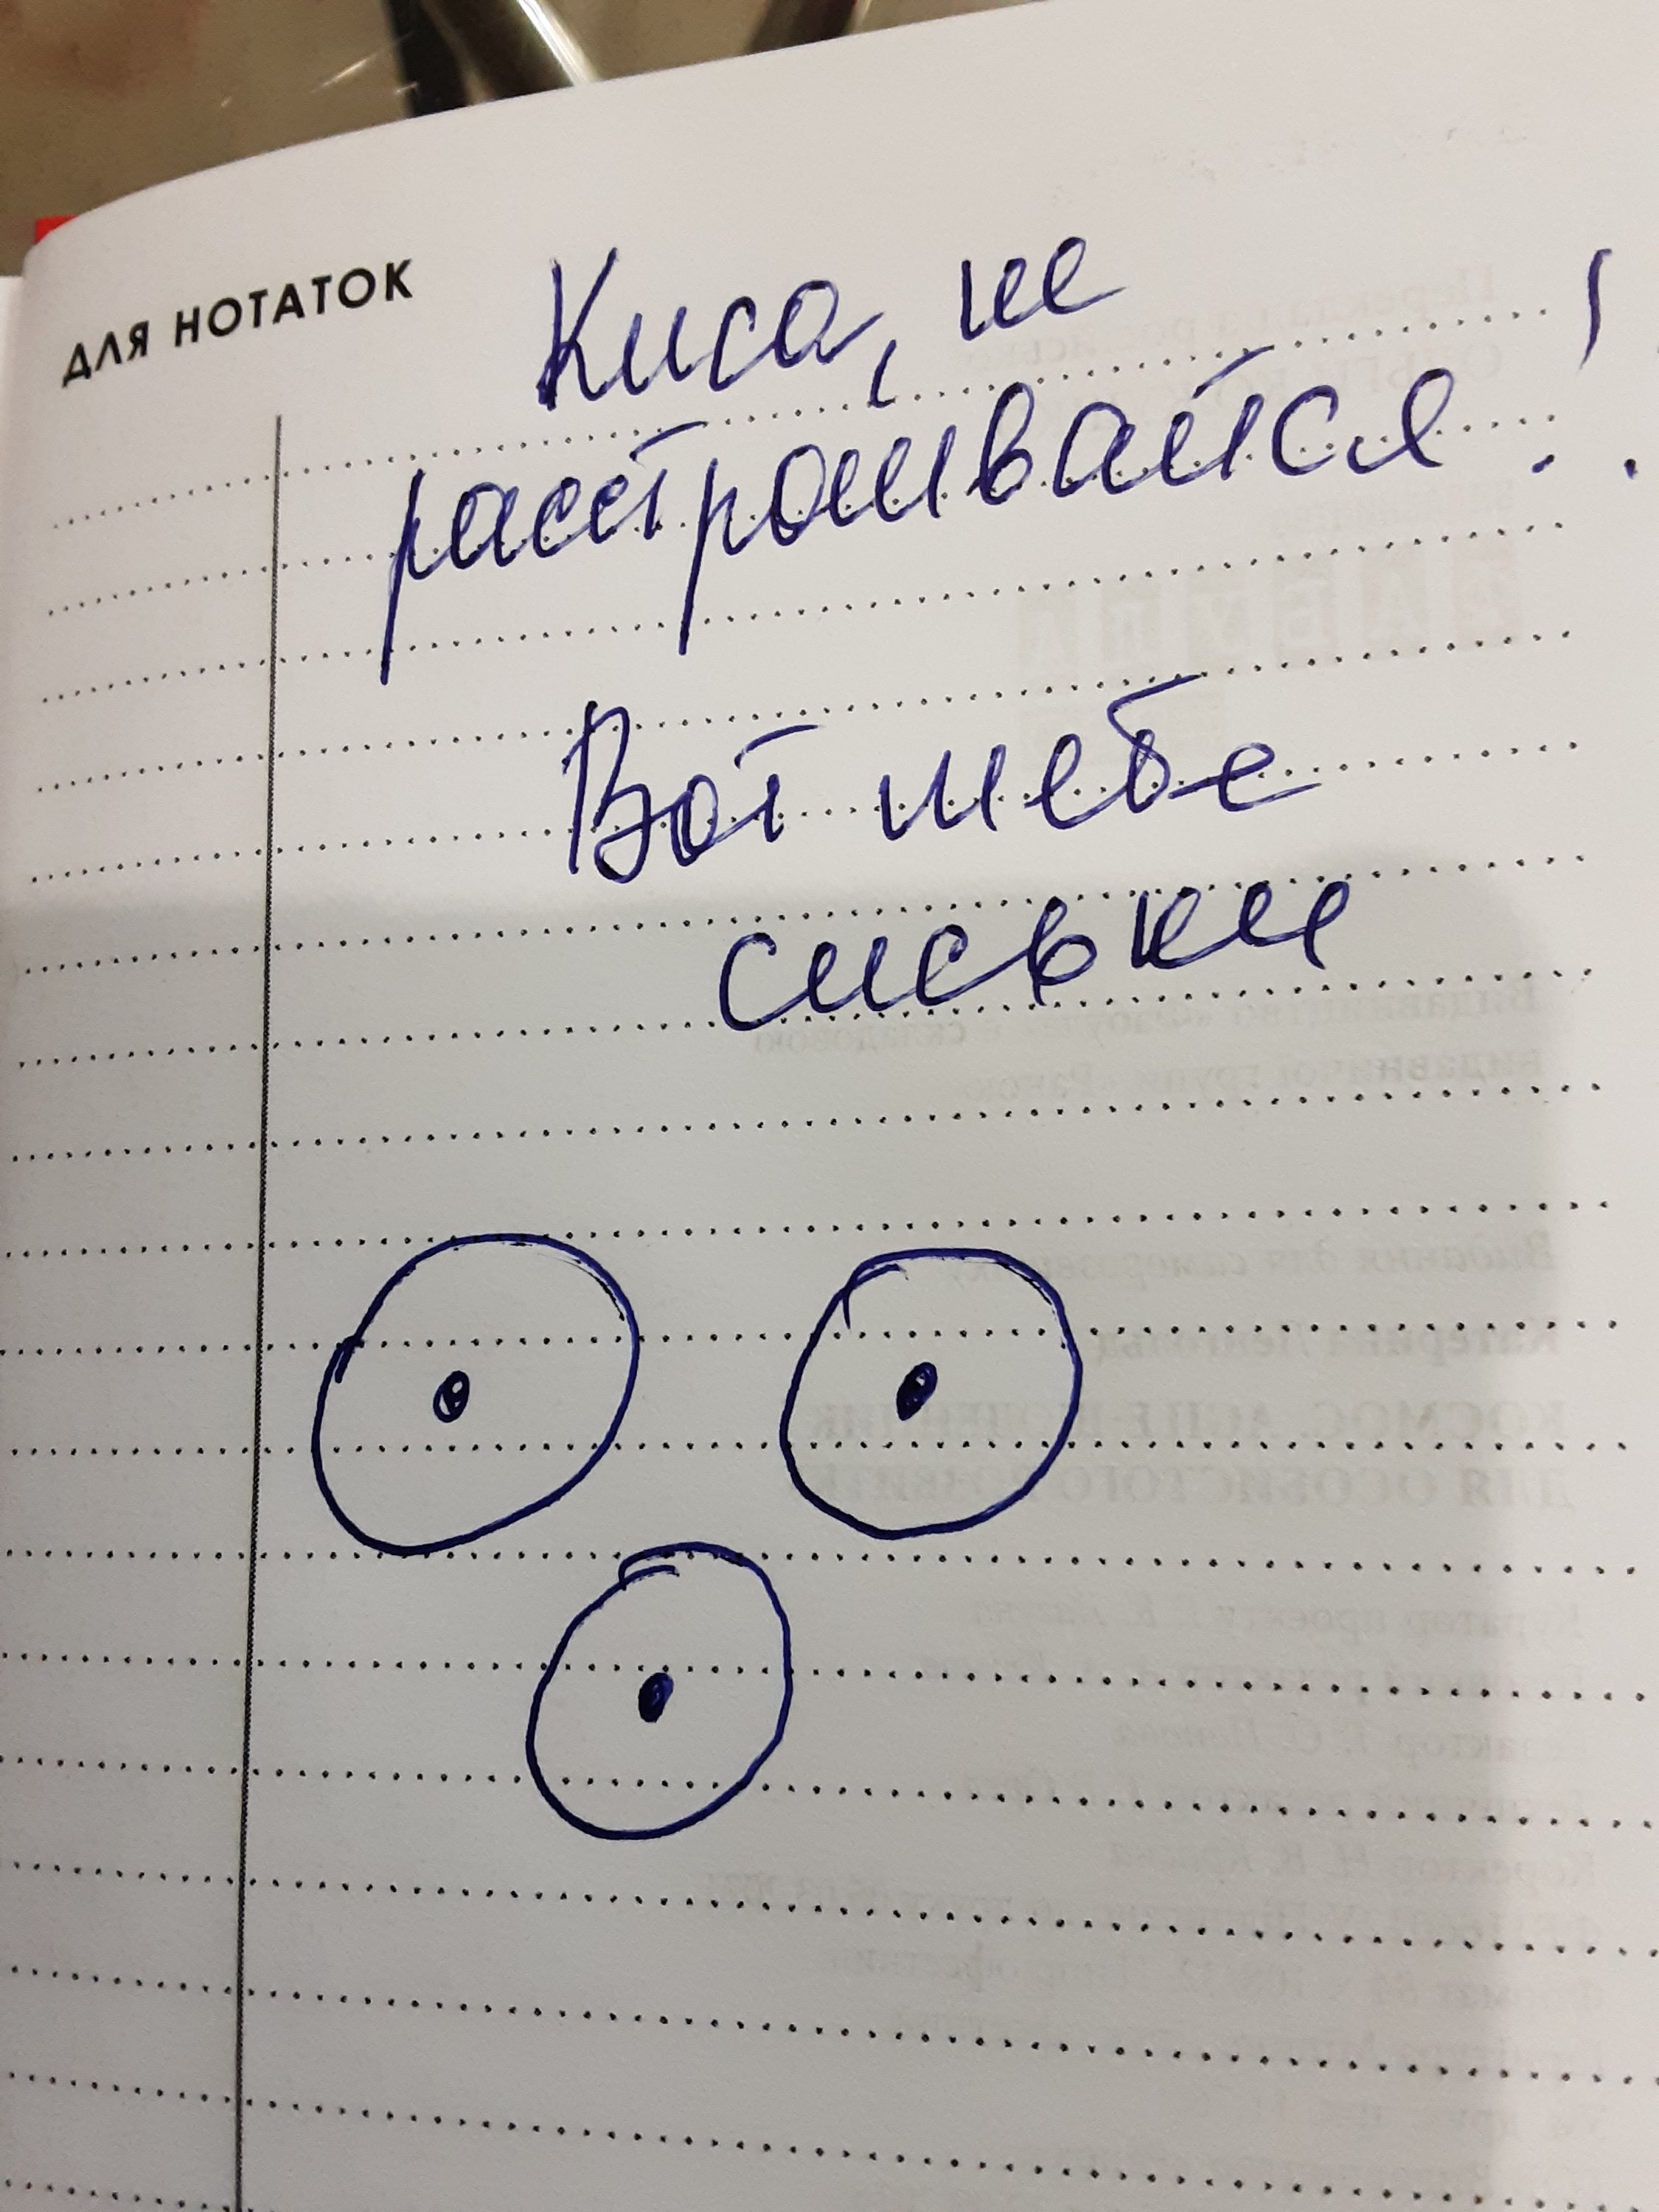 ДЛЯ НОТАТОК
Киса, не
расстроивайся!
Вот тебе
сиськи